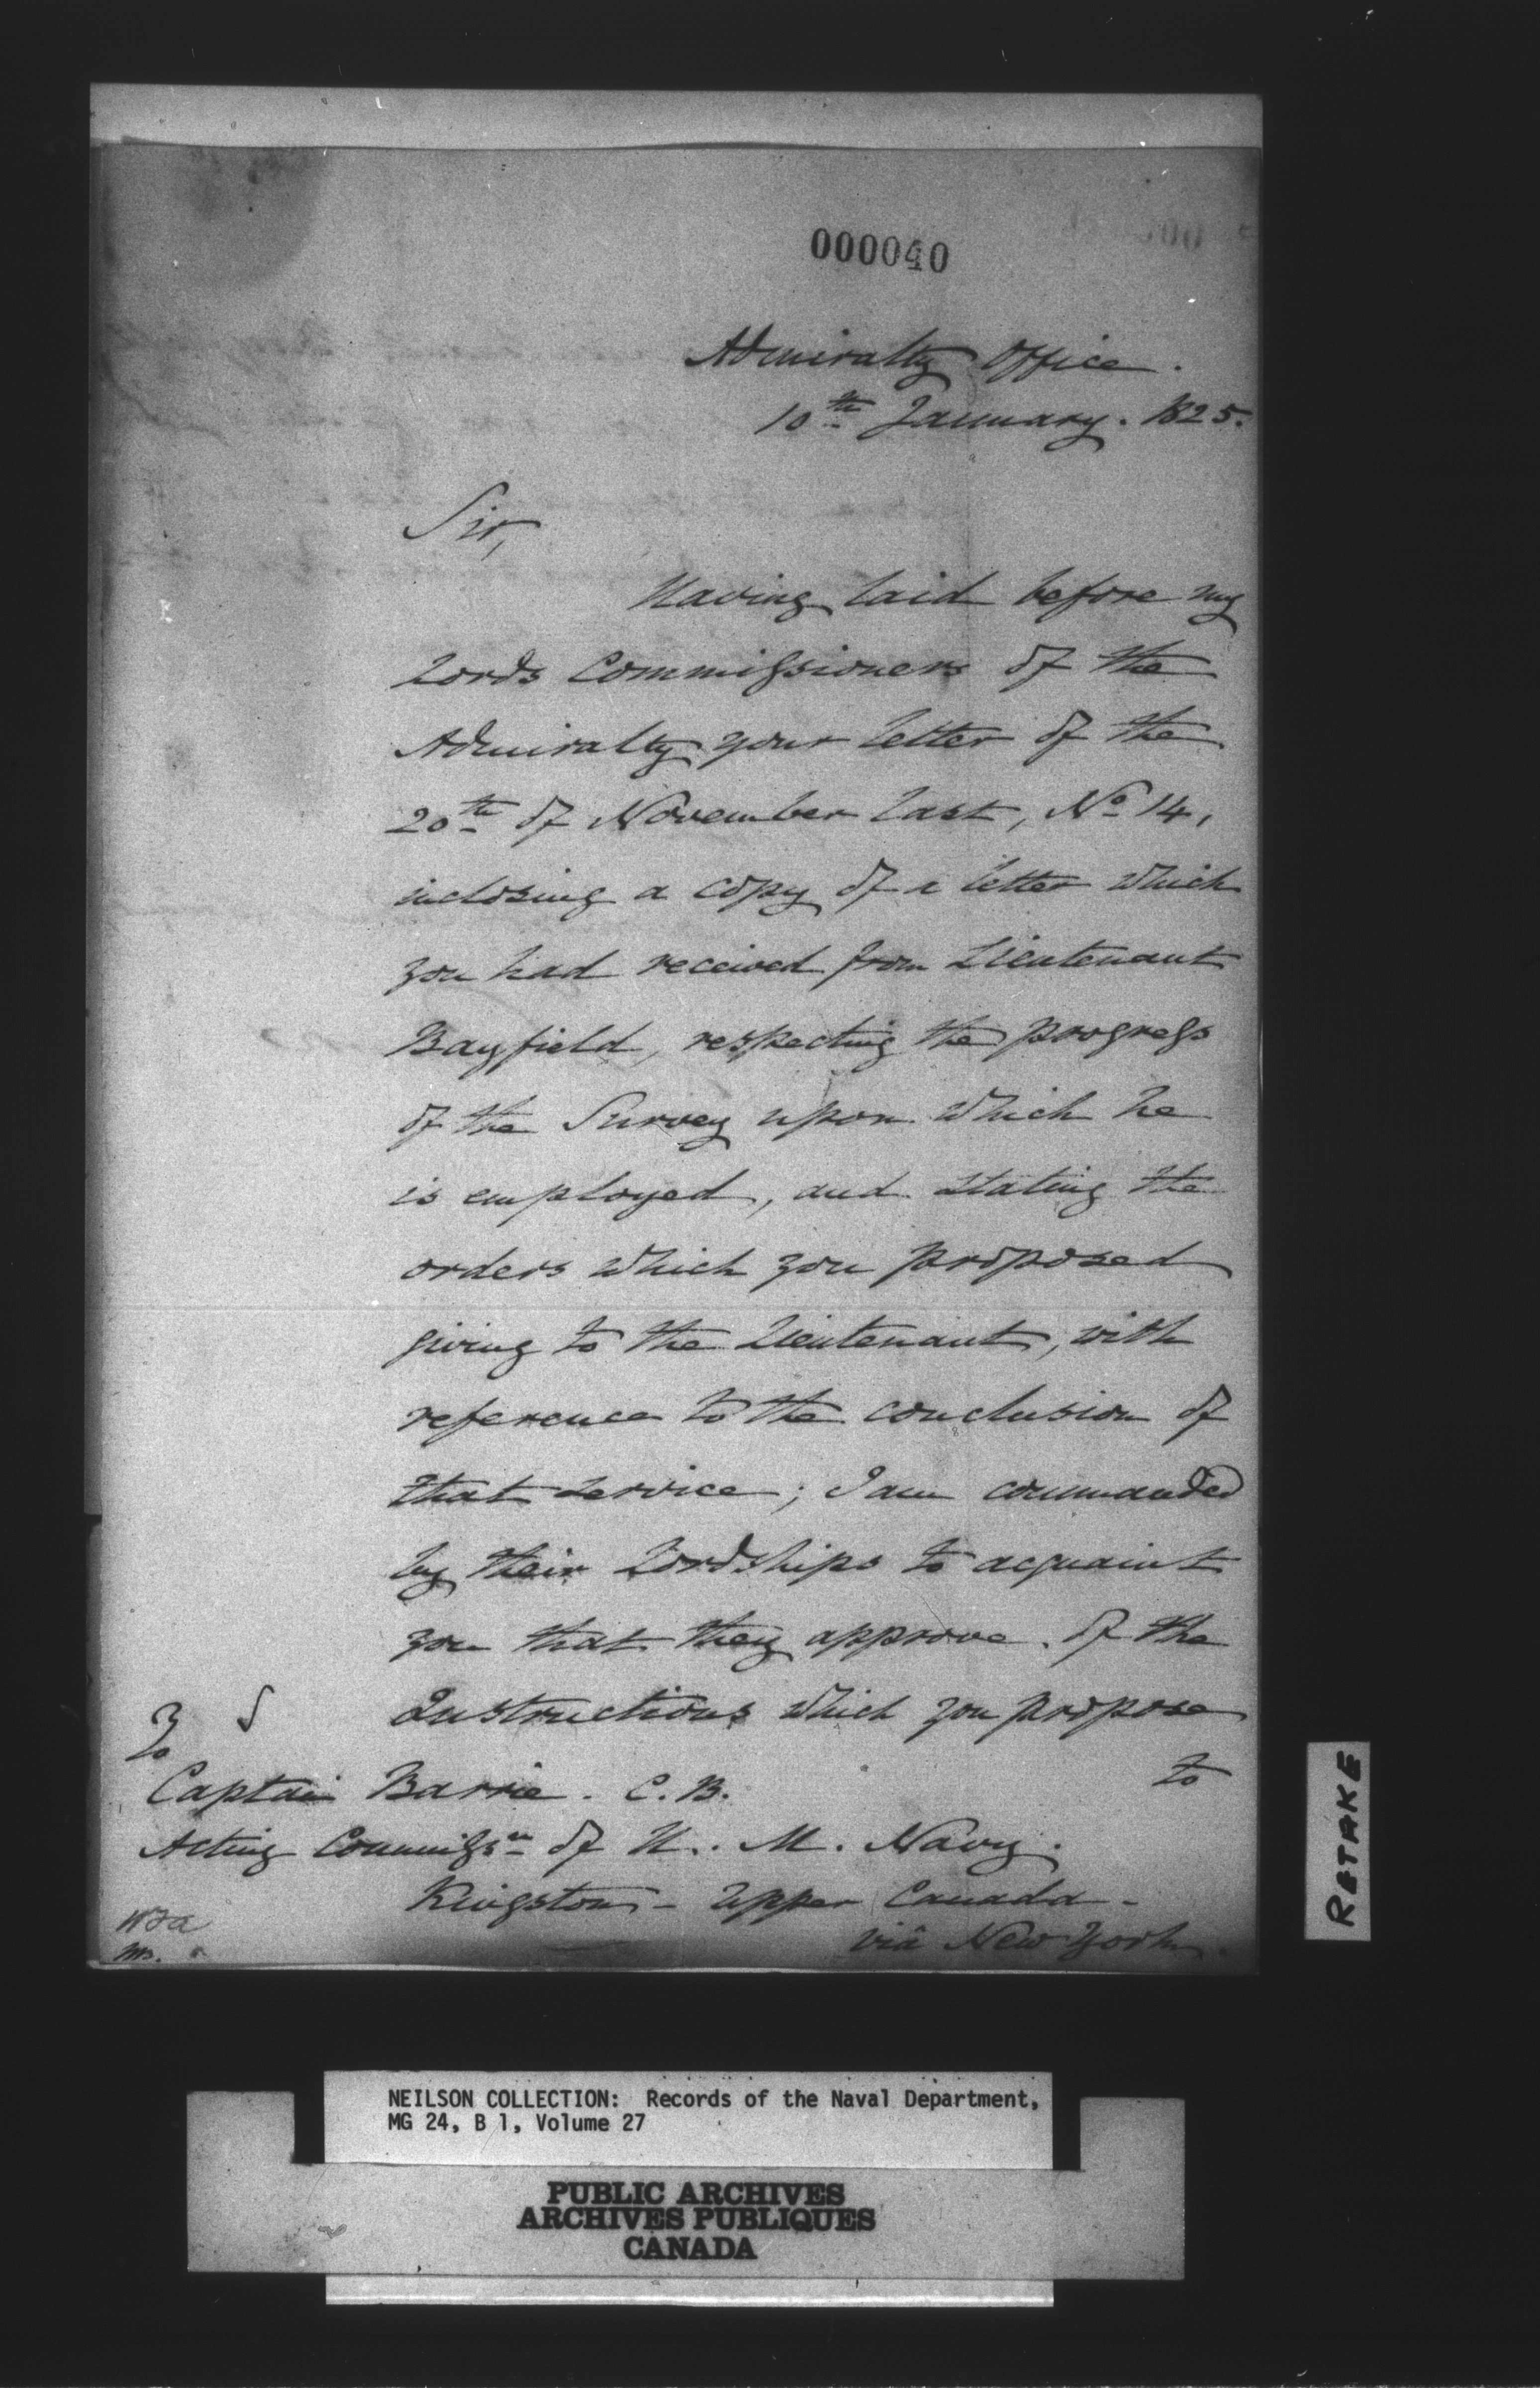 000040
Admiralty Office.
10th January. 1825.
Sir,
Having laid before my
Lords Commissioners of the
Admiralty your letter of the
20th of November last, No 14,
inclosing a copy of a letter which
you had received from Lieutenant
Bayfield, respecting the progress
of the Survey upon which he
is employed, and stating the
orders which you proposed
giving to the Lieutenant, with
reference to the conclusion of
that service; I am commanded
by their Lordships to acquaint
you that they approve of the
Instructions which you propose
to
Captain Barrie. C.B.
Acting Commissr of H. M. Navy.
Kingston - Upper Canada -
viâ New York.
RETAKE
NEILSON COLLECTION: Records of the Naval Department,
MG 24, B 1, Volume 27
PUBLIC ARCHIVES
ARCHIVES PUBLIQUES
CANADA